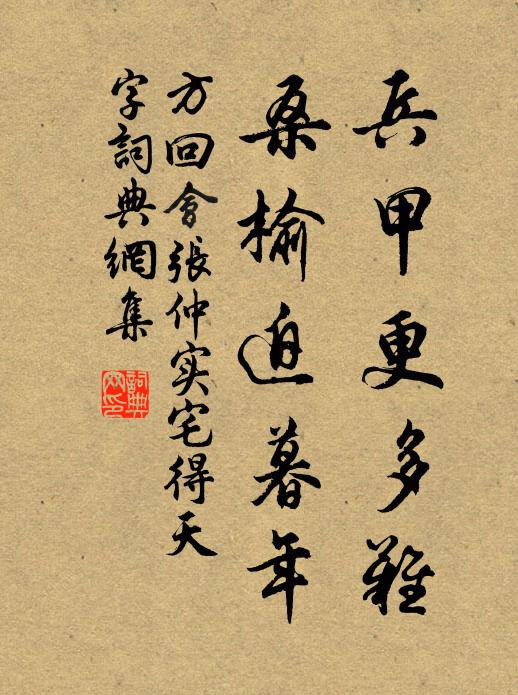 兵甲更多難
桑榆迫暮年
方回會張仲实宅得天
字詞典網集
詞典
网印